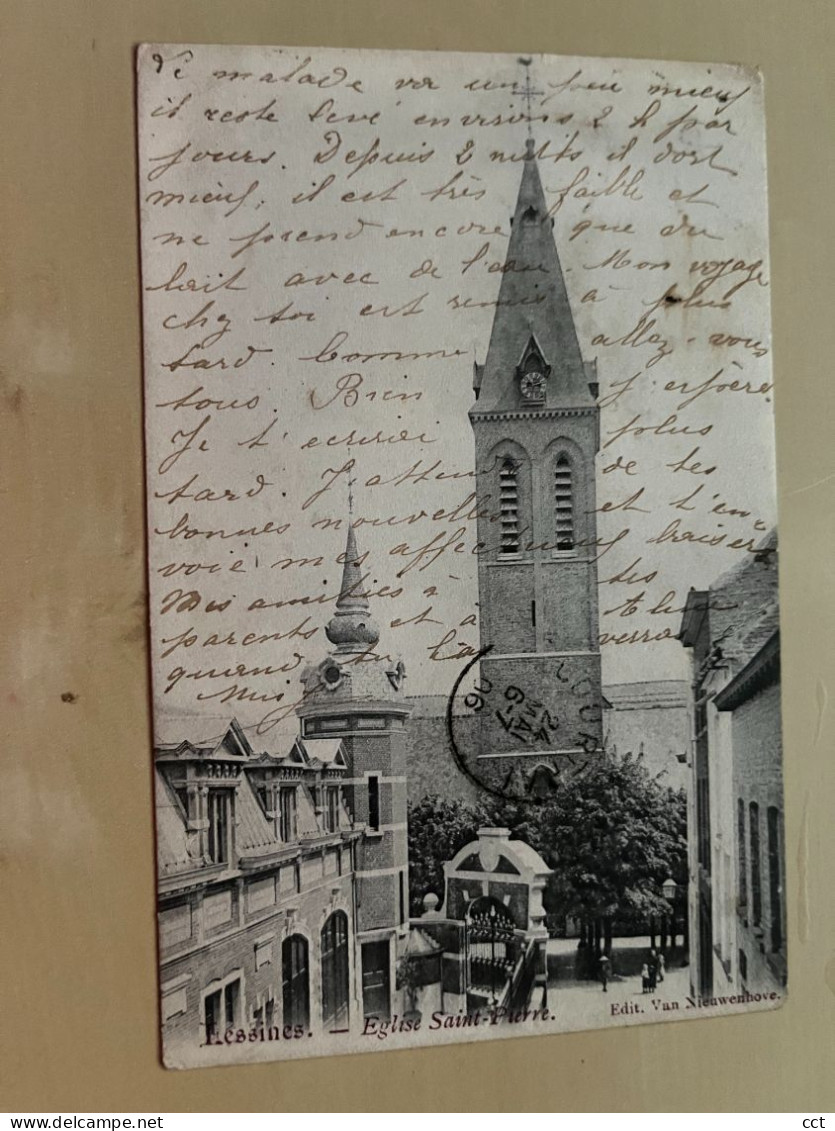 Le malade va un peu mieux
il reste levé environs 2 h par
jours. Depuis 2 nuits il dort
mieux, il est très faible et
ne prend encore que du
lait avec de l'eau. Mon voyage
chez toi est remis à plus
tard. Comme allez-vous
tous. Bien j'espère.
Je t'ecrirai plus
tard. J'attend de tes
bonnes nouvelles et t'en-
voie mes affectueux baisers
Mes amitiés à tes
parents et à
quand tu la verra
24
MAI
6-7
06
Lessines. — Eglise Saint-Pierre.
Edit. Van Nieuwenhove.
cct